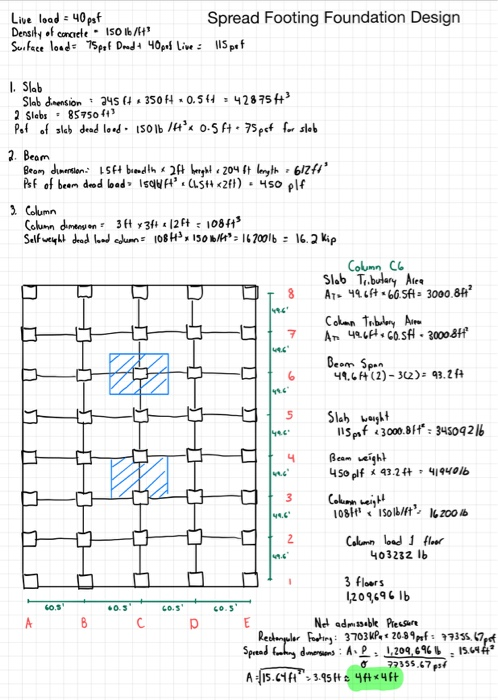 Live load = 40psf
Density of concrete = 150 lb/ft³
Surface load = 75psf Dead + 40psf Live = 115 psf
Spread Footing Foundation Design
1. Slab
Slab dimension = 245 ft x 350 ft x 0.5 ft = 42875 ft³
2 Slabs = 85750 ft³
Psf of slab dead load = 150 lb /ft³ x 0.5 ft = 75psf for slab
2. Beam
Beam dimension: 1.5ft breadth x 2ft height x 204 ft length = 612 ft³
Psf of beam dead load = 150lb/ft³ x (1.5ft x2ft) = 450 plf
3. Column
Column dimension = 3 ft x 3ft x 12 ft = 108ft³
Self weight dead load column = 108 ft³ x 150 lb/ft³ = 16200 lb = 16.2 Kip
Column C6
Slab Tributary Area
AT= 49.6ft x 60.5ft = 3000.8ft²
Column Tributary Area
AT= 49.6ft x 60.5ft = 3000.8ft²
Beam Span
49.6ft (2) - 3(2) = 93.2 ft
Slab weight
115psf x 3000.8ft² = 345092 lb
Beam weight
450 plf x 93.2 ft = 41940 lb
Column weight
108ft³ x 150lb/ft³ = 16200 lb
Column load 1 floor
403232 lb
3 floors
1,209,696 lb
8
49.6'
7
49.6'
6
49.6'
5
49.6'
4
49.6'
3
49.6'
2
49.6'
1
60.5' 60.5' 60.5' 60.5'
A B C D E
Net admissable Pressure
Rectangular Footing: 3703KPa x 20.89psf = 77355.67psf
Spread footing dimensions: A = P/σ = 1,209,696 lb / 77355.67 psf = 15.64ft²
A = √15.64ft² = 3.95ft ≈ 4ft x 4ft